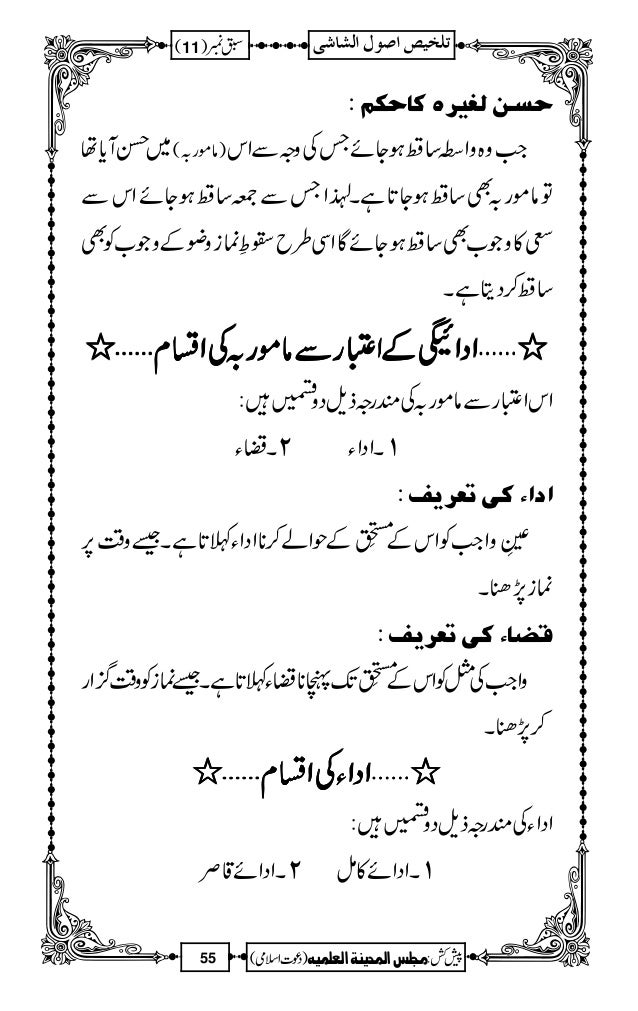 تلخیص اصول الشاشی سبق نمبر (11)
حسن لغیرہ کاحکم :
جب وہ واسطہ ساقط ہوجائے جس کی وجہ سے اس (مامور بہ) میں حسن آیا تھا
تو مامور بہ بھی ساقط ہوجاتا ہے۔لہذا جس سے جمعہ ساقط ہوجائے اس سے
سعی کا وجوب بھی ساقط ہو جائے گا اسی طرح سقوطِ نماز وضو کے وجوب کو بھی
ساقط کر دیتا ہے۔
☆......ادائیگی کے اعتبار سے مامور بہ کی اقسام......☆
اس اعتبار سے مامور بہ کی مندرجہ ذیل دو قسمیں ہیں:
۱۔اداء ۲۔قضاء
اداء کی تعریف :
عینِ واجب کو اس کے مستحِق کے حوالے کرنا اداء کہلاتا ہے۔جیسے وقت پر
نماز پڑھنا۔
قضاء کی تعریف :
واجب کی مثل کو اس کے مستحِق تک پہنچانا قضاء کہلاتا ہے۔جیسے نماز کو وقت گزار
کر پڑھنا۔
☆......اداء کی اقسام......☆
اداء کی مندرجہ ذیل دو قسمیں ہیں:
۱۔ادائے کامل ۲۔ادائے قاصر
پیش کش: مجلس المدینۃ العلمیہ (دعوت اسلامی) 55